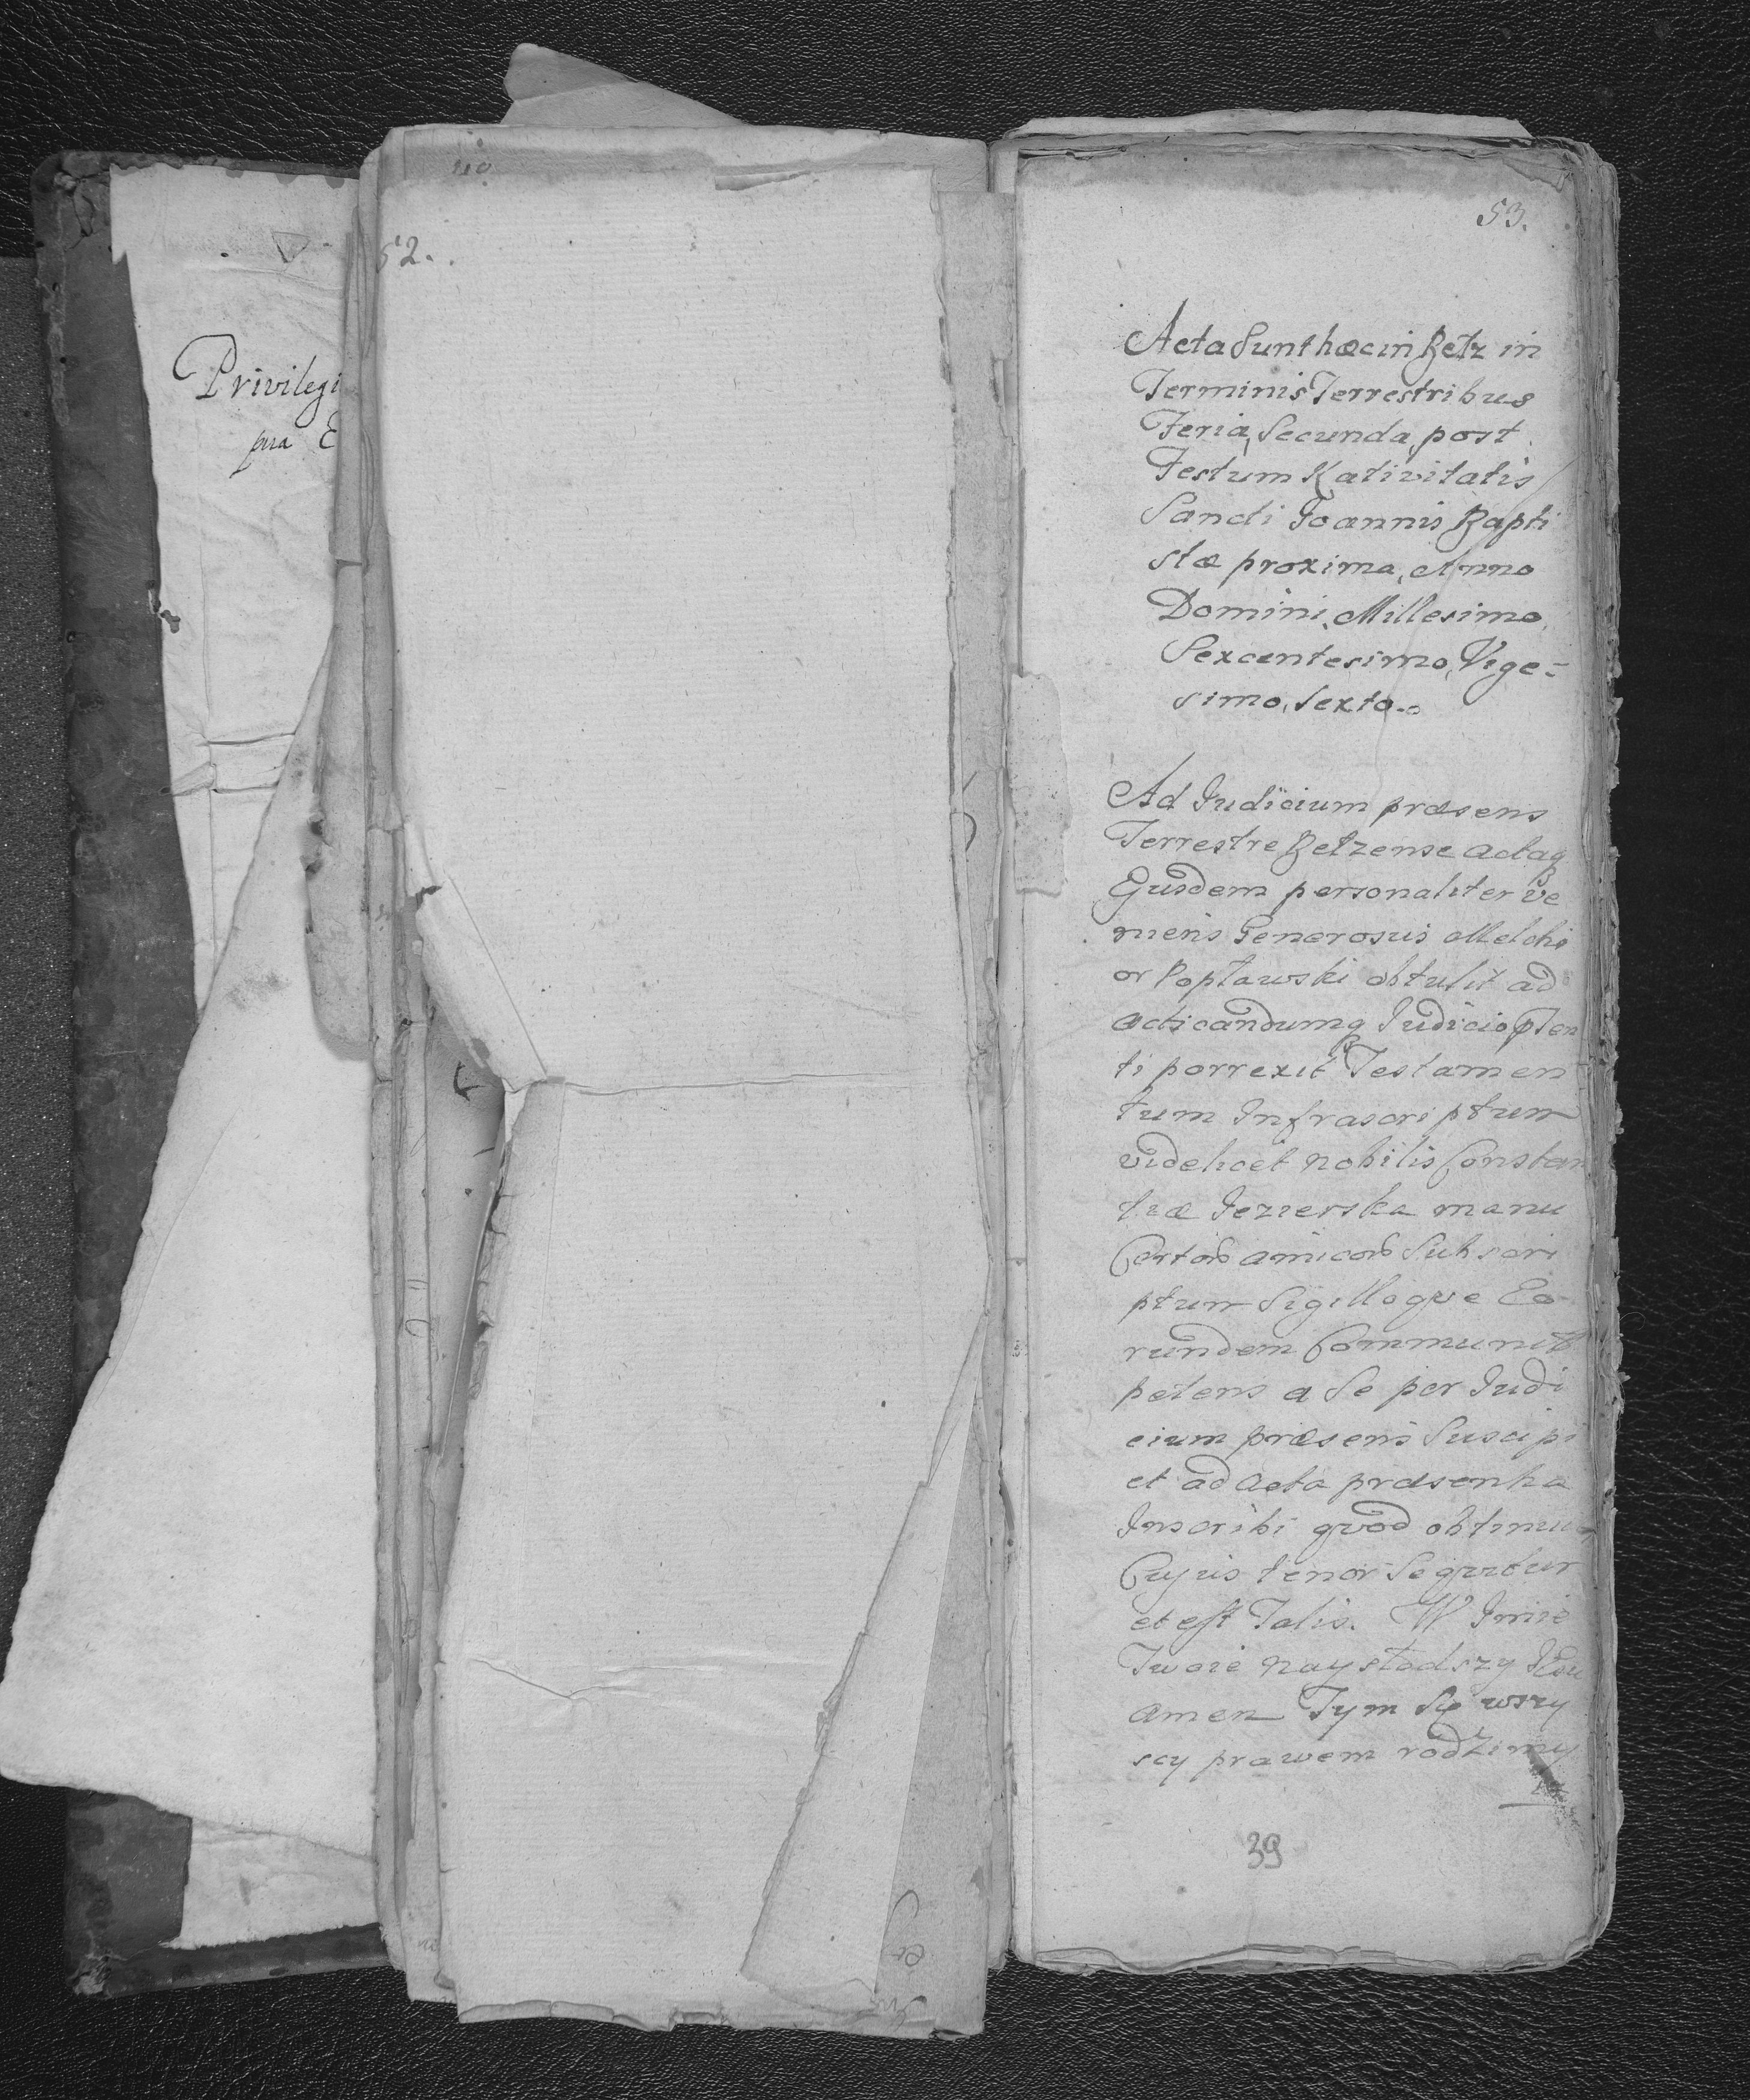 Privilegi
pra E
52.
53.
Acta Sunt hæc in Betz in
Terminis Terrestribus
Feria, Secunda, post
Festum Nativitatis
Sancti Joannis Bapti
stæ proxima, Anno
Domini, Millesimo,
Sexcentesimo, Vige-
simo, Sexto.
Ad Judicium præsens
Terrestre Betzense actaq
Ejusdem personaliter ve
niens Generosus Melchi
or Popławski obtulit ad
acticandumq Judicio pſen
ti porrexit Testamen
tum Infrascriptum
videlicet nobilis Constan
tiæ Jezierska manu
Certorꝭ amicorꝭ Subscri
ptum Sigilloqve Eo
rundem Communitꝭ
petens a Se per Judi
cium præsens Suscipi
et ad Acta præsentia
Inscribi qvod obtinuit
Cujus tenor Seqvitur
et eſt Talis. W Jmie
Twoie naysłodszy JEsu
amen Tym Się wszy
scy prawem rodzimy
39